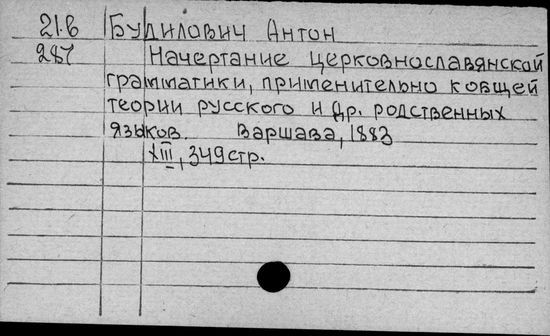 21.б Будилович Антон
287 Начертание церковнославянской
грамматики, применительно к общей
теории русского и др. родственных
языков. Варшава, 1883
XIII, 349 стр.